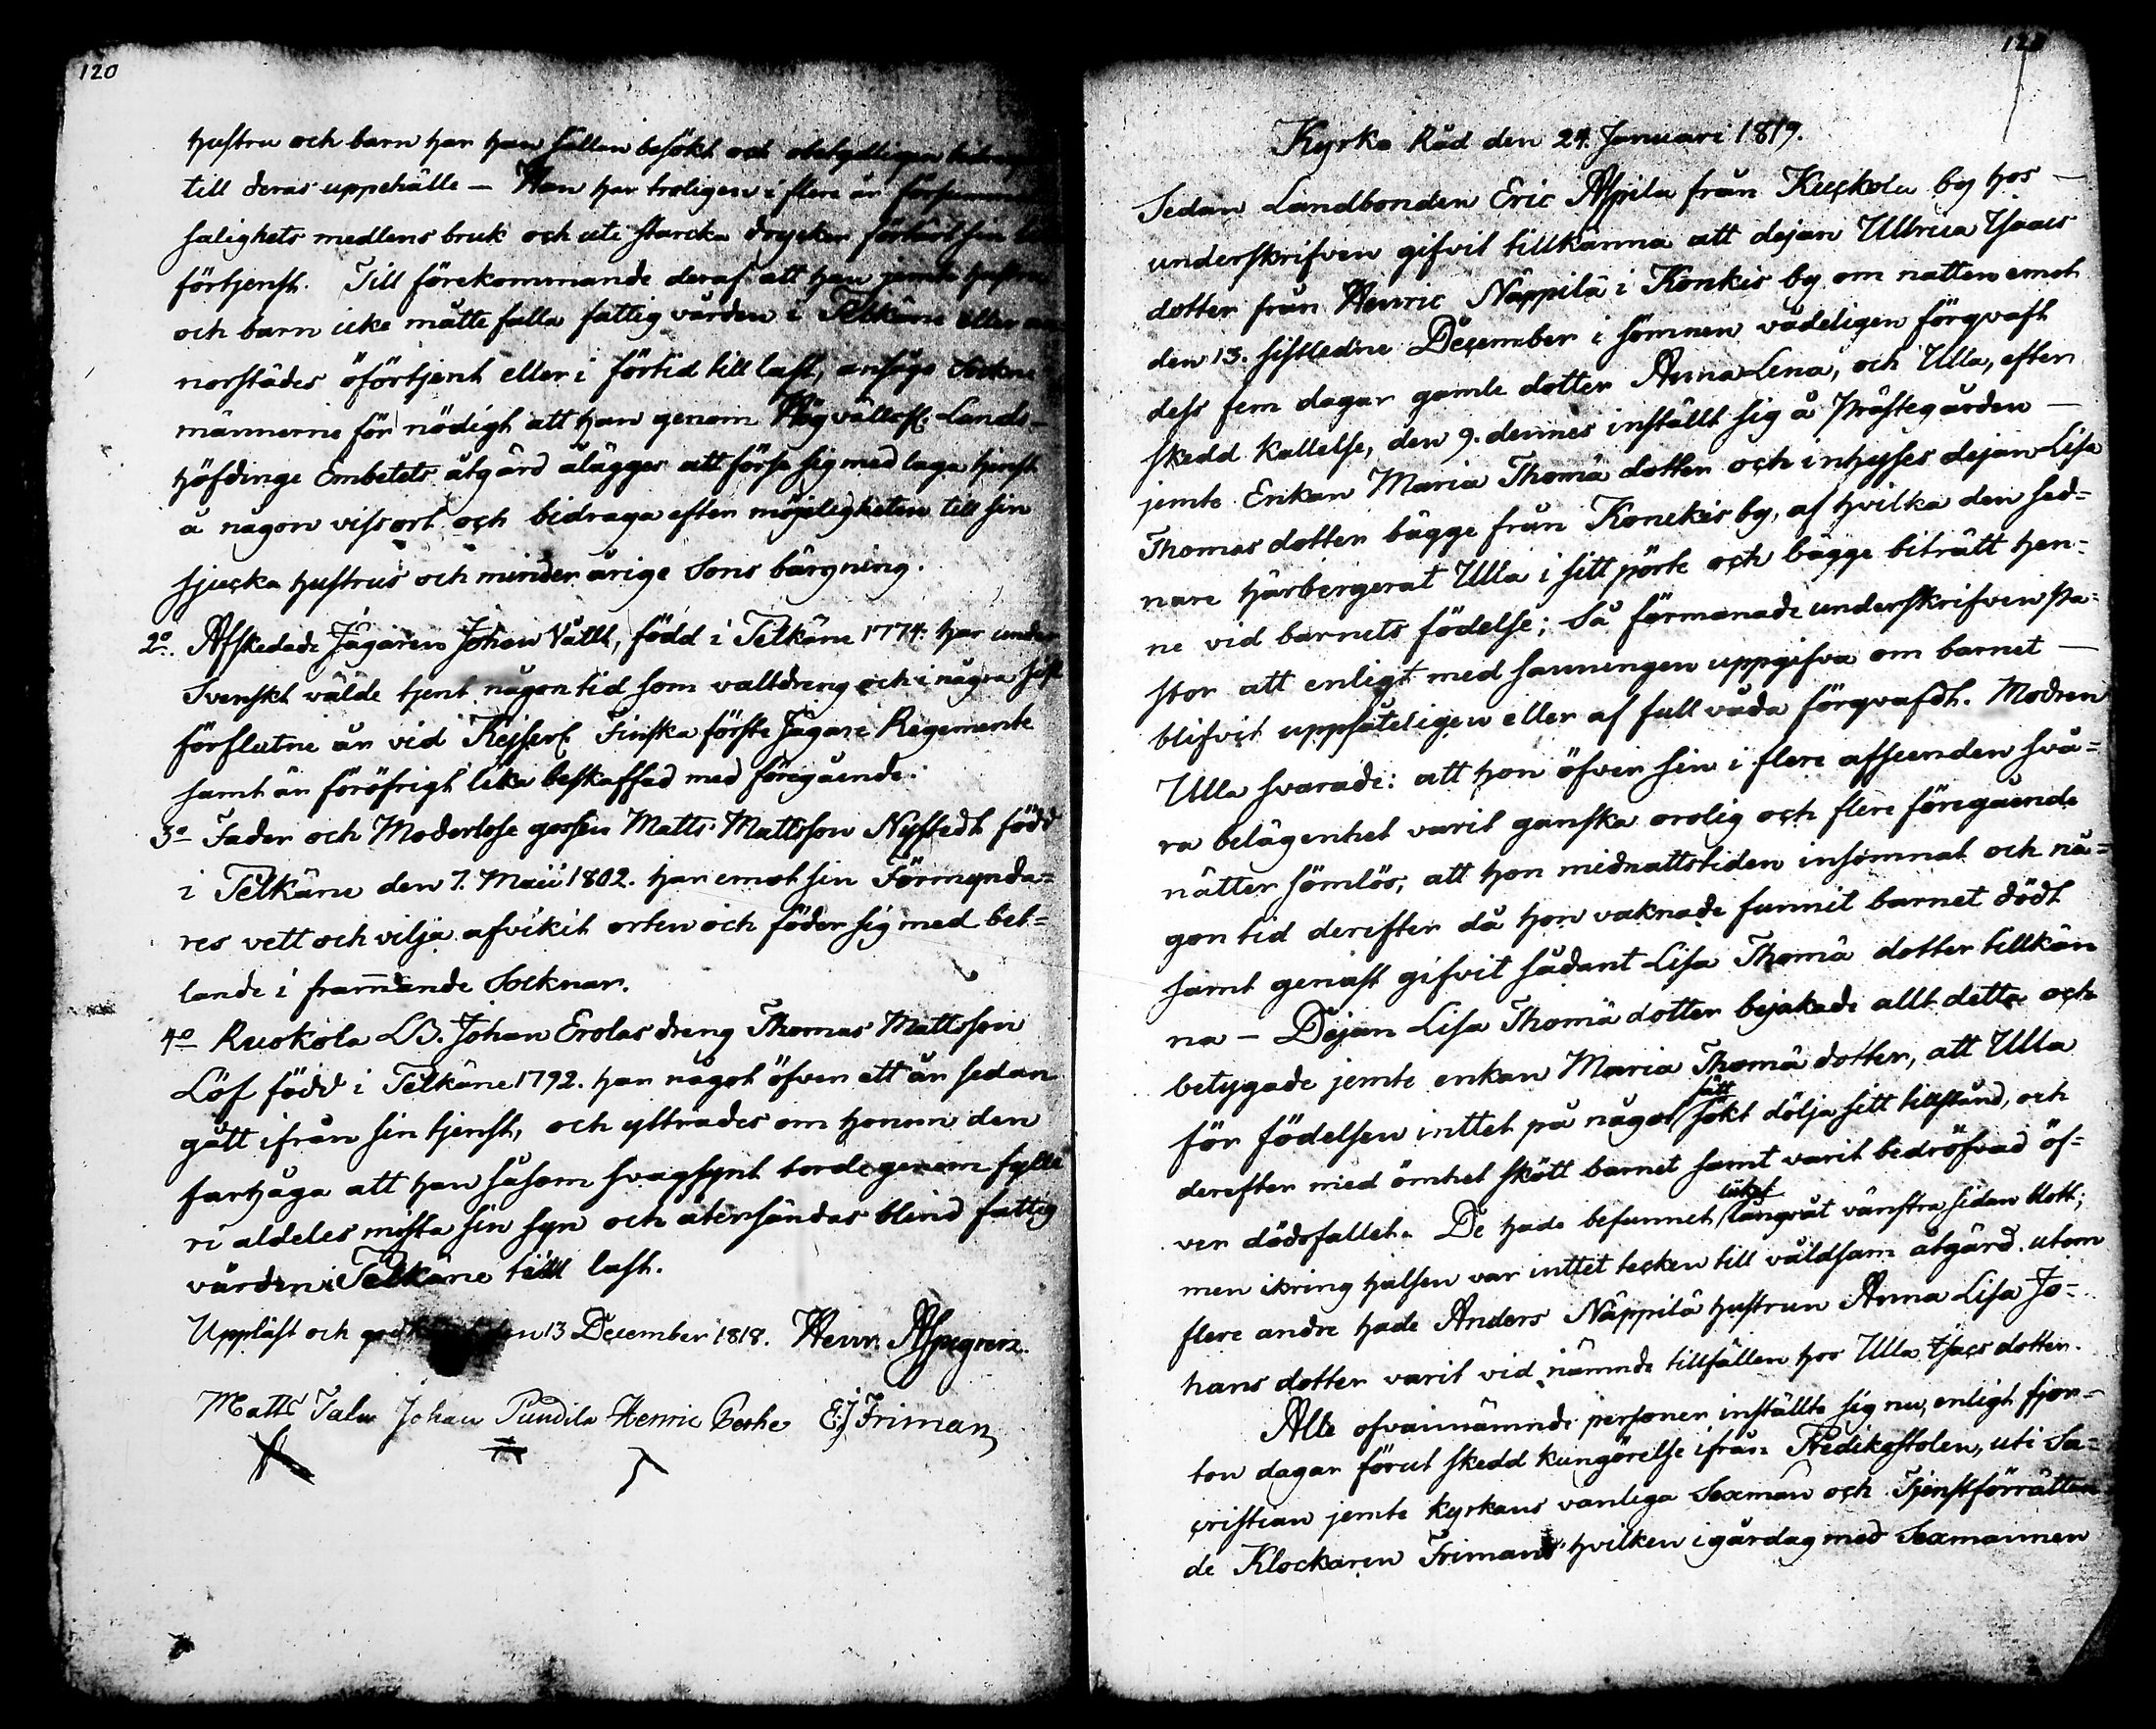 120
hustru och barn har han sällan besökt och obetydligen bidragit
till deras uppehälle – Han har troligen i flere år
salighets medlens bruk och uti starcka drycker förtärt sin
förtjenst. Till förekommande deraf att han jemte hustru
och barn icke måtte falla fattigvården i Pelkäne eller an-
norstädes oförtjent eller i förtid till last, ansågo Sockne
männerne för nödigt att han genom Högvällofl: Lands-
höfdinge Embetets åtgärd ålägges att förse sig med laga tjenst
å någon viss ort och bidraga efter möjeligheten till sin
sjucka hustrus och minder årige Sons bärgning.
2o. Afskedade Jägaren Johan Vätt, född i Pelkäne 1774. har under
Svenskt välde tjent någon tid som valtdreng och i några sist
förflutne år vid Kejserl. Finska förste Jägare Regemente
samt är föröfrigt lika beskaffad med föregående.
3o Fader och Moderlose gossen Matts Mattsson Nystedt född
i Pelkäne den 7. Maii 1802. har emot sin Förmynda-
res vett och vilja afvikit orten och föder sig med bet-
lande i främande Socknar.
4o Ruokola LB. Johan Erolas dreng Thomas Mattsson
Löf född i Pelkäne 1792. har något öfver ett år sedan
gått ifrån sin tjenst, och yttrades om honom den
farhåga att han såsom svagsynt torde genom fylle
ri aldeles mista sin syn och återsändas blind fattig
vården i Pelkäne till last.
Uppläst och den 13 December 1818. Henr. Aspegren.
Matts Talu Johan Pundila Henric Perhe E:J Friman

Kyrko Råd den 24. Januari 1819.
Sedan Landbonden Eric Äppilä från Kuckola by hos –
underskrifven gifvit tillkänna att dejan Ullrica Isaacs
dotter från Henric Näppilä i Konkis by om natten emot
den 13. sistledne December i sömnen vådeligen förqvaft
dess fem dagar gamle dotter Anna Lena, och Ulla, efter
skedd kallelse, den 9. dennes inställt sig å Prästegården –
jemte Enkan Maria Thomä dotter och inhyses dejan Lisa
Thomas dotter bägge från Konckis by, af hvilka den sed-
nare härbergerat Ulla i sitt pörte och bägge biträtt hen-
ne vid barnets födelse; Så förmanade underskrifven Pa-
stor att enligt med sanningen uppgifva om barnet –
blifvit uppsåteligen eller af full våda förqvafdt. Modren
Ulla svarade: att hon öfver sin i flere afseenden svå-
ra belägenhet varit ganska orolig och flere föregående
nätter sömlös, att hon midnattstiden insomnat och nå-
gon tid derefter då hon vaknade funnit barnet dödt
samt genast gifvit sådant Lisa Thomä dotter tillkän
na – Dejan Lisa Thomä dotter bejakade allt detta och
betygade jemte enkan Maria Thomä dotter, att Ulla
för födelsen inttet på något sätt sökt dölja sitt tillstånd, och
derefter med ömhet skött barnet samt varit bedröfvad öf-
ver dödsfallet. De hade befunnet liket långsåt vänstra sidan blott;
men ikring halsen var inttet tecken till våldsam åtgärd. utom
flere andre hade Anders Näppilä hustrun Anna Lisa Jo-
hans dotter varit vid nämnde tillfällen hos Ulla Isacs dotter.
Alle ofvannämnde personer inställte sig nu, enligt fjor-
ton dagar förut skedd kungörelse ifrån Predikostolen, uti Sa-
cristian jemte kyrkans vanliga Sexmän och Tjenstförrättan
de Klockaren Friman hvilken i gårdag med Sexmannen